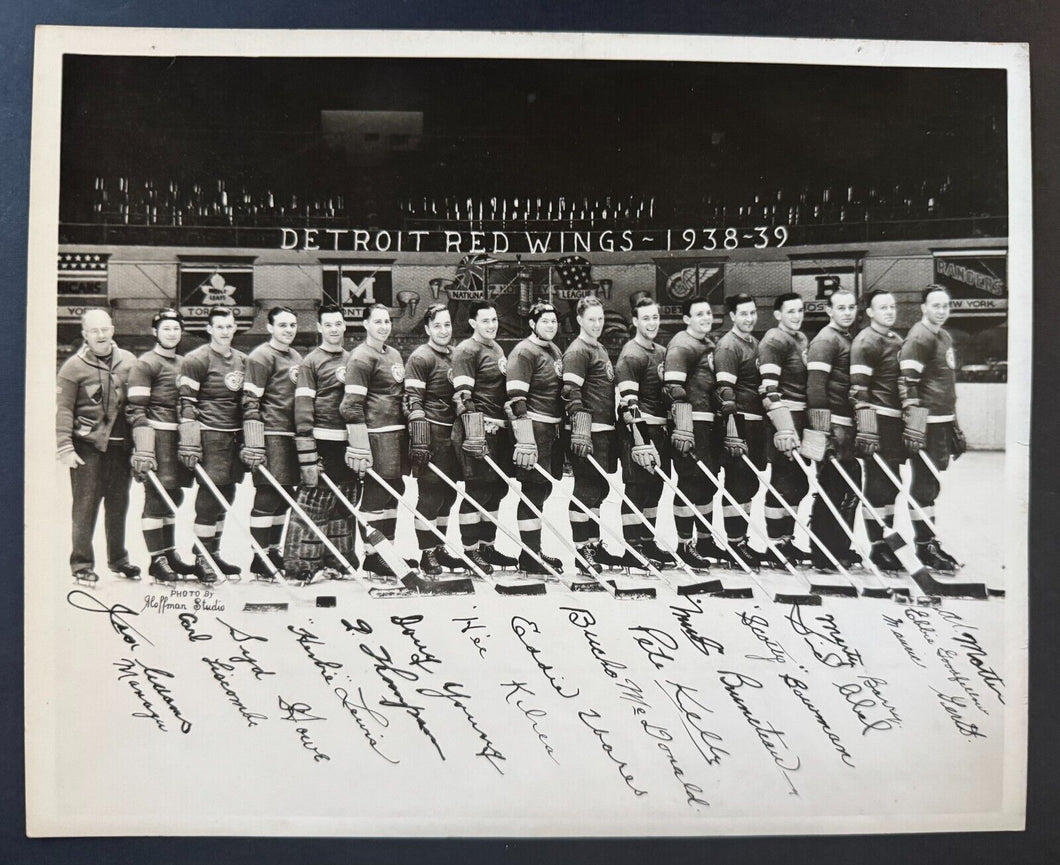 DETROIT RED WINGS ~ 1938-39
CANS
YORK
MAPLE LEAFS
TORONTO
M
NATIONAL
LEAGUE
DE
B
BOS
RANGERS
NEW YORK
PHOTO BY
Hoffman Studio
Jack Adams
Manager
Carl Liscombe
Syd Howe
"Herbie" Lewis
T. Thompson
Doug Young
"Hec" Kilrea
Eddie Wares
Bucko McDonald
Pete Kelly
"Mud" Bruneteau
"Scotty" Bowman
Sid Abel
Marty Barry
Ebbie Goodfellow